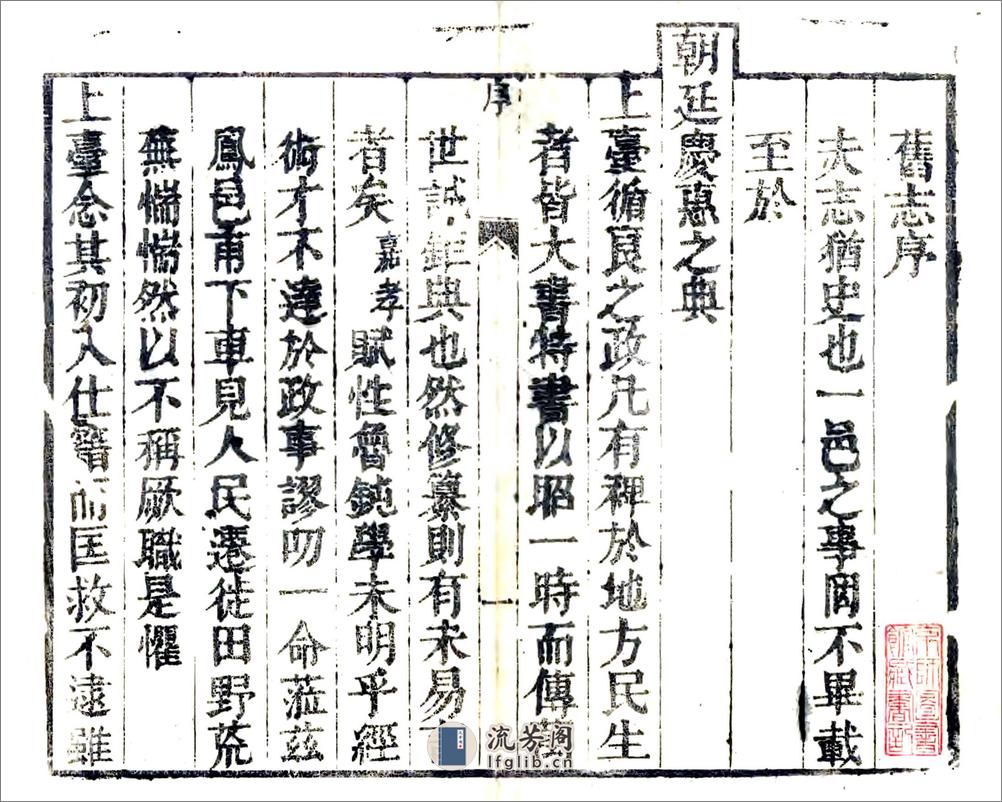 舊志序
夫志猶史也一邑之事罔不畢載
至於
朝廷慶惠之典
上臺循良之政凡有裨於地方民生
者皆大書特書以昭一時而傳
序
一
世誠鉅典也然修纂則有未易
者矣嘉孝賦性魯鈍學未明乎經
術才不達於政事謬叨一命蒞茲
鳳邑甫下車見人民遷徙田野荒
蕪惴惴然以不稱厥職是懼
上臺念其初入仕籍而匡救不遠雖
流芳阁
lfglib.cn